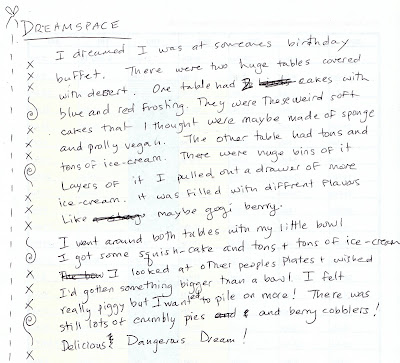 DREAMSPACE
I dreamed I was at someones birthday
buffet. There were two huge tables covered
with desert. One table had 2 cakes with
blue and red frosting. They were These weird soft
cakes that I thought were maybe made of sponge
and prolly vegan. The other table had tons and
tons of ice-cream. There were huge bins of it
Layers of it I pulled out a drawer of more
ice-cream. it was filled with diffrent flavors
Like maybe gogi berry.
I went around both tables with my little bowl
I got some squish-cake and tons + tons of ice-cream
I looked at other peoples plates + wished
I'd gotten something bigger than a bowl. I felt
really piggy but I wanted to pile on more! There was
still lots of crumbly pies & and berry cobblers!
Delicious & Dangerous Dream!